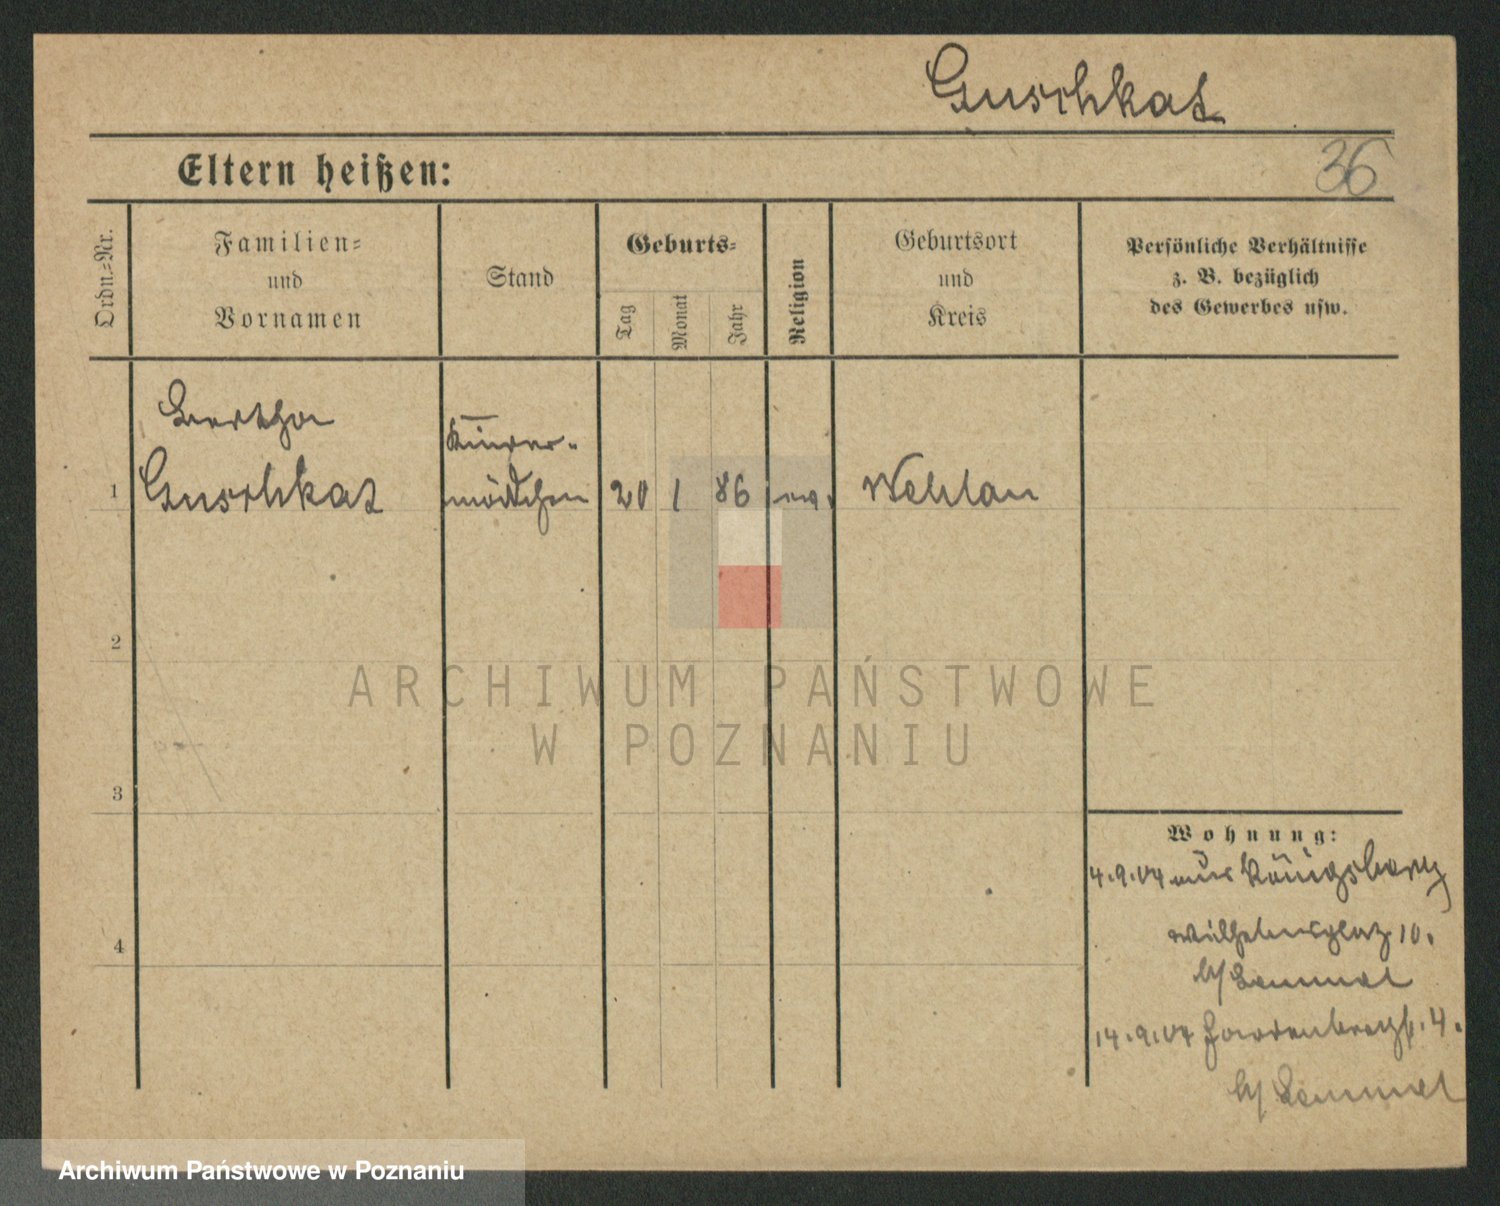 Guschkat
Eltern heißen:
36
Ordn.-Nr.
Familien-
und
Vornamen
Stand
Geburts-
Tag
Monat
Jahr
Religion
Geburtsort
und
Kreis
Persönliche Verhältnisse
z. B. bezüglich
des Gewerbes usw.
Bertha
Kinder-
1 Guschkat mädchen 20 1 86 ev. Wehlau
2
ARCHIWUM PAŃSTWOWE
W POZNANIU
3
Wohnung:
4.9.04 aus Königsberg
Wilhelmsplatz 10.
4
b/
14.9.04 Hardenbergstr. 4.
b/
Archiwum Państwowe w Poznaniu